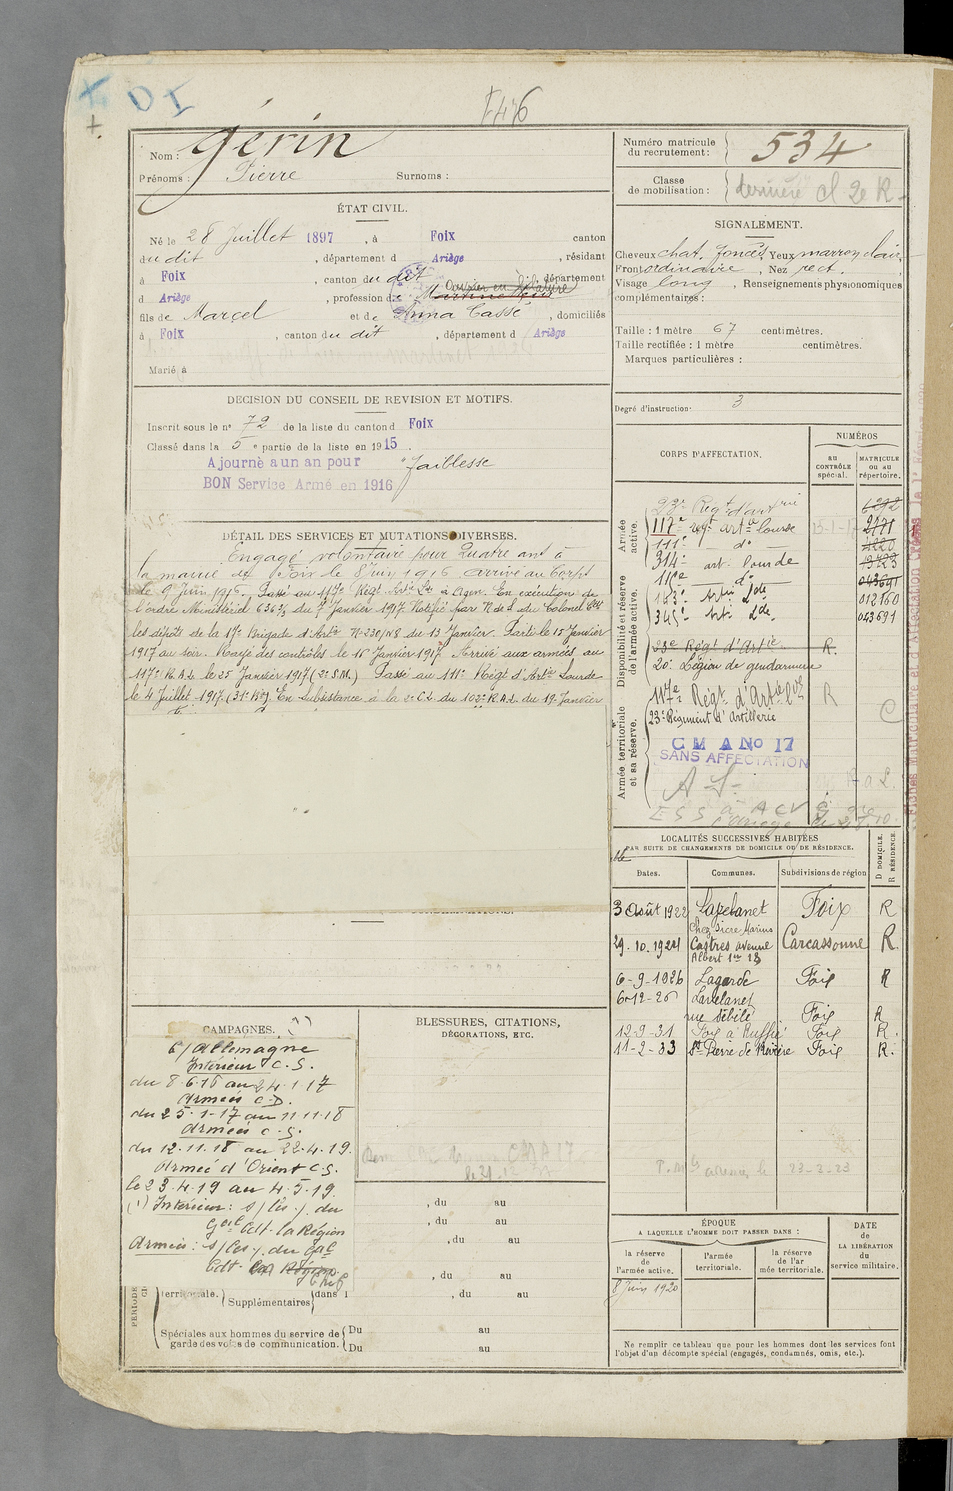 DI
1476
Nom : Gérin
Prénoms : Pierre Surnoms :
ÉTAT CIVIL.
Né le 28 Juillet 1897, à Foix canton
du dit, département d Ariège, résidant
à Foix, canton du dit, département
d Ariège, profession de Ouvrier en filature
fils de Marcel et de Anna Cassé, domiciliés
à Foix, canton du dit, département d Ariège
Marié à
DECISION DU CONSEIL DE REVISION ET MOTIFS.
Inscrit sous le n° 72 de la liste du canton d Foix
Classé dans la 5e partie de la liste en 1915.
Ajourné a un an pour "faiblesse
BON Service Armé en 1916
DÉTAIL DES SERVICES ET MUTATIONS DIVERSES.
Engagé volontaire pour quatre ans à
la mairie de Foix le 8 Juin 1916 arrivé au Corps
le 9 juin 1916. Passé au 117e Régt Artie Lde à Agen. En exécution de
l'ordre Ministériel 636 2/3 du 7 Janvier 1917 Notifié par N. de S. du Colonel Ct
les dépôts de la 17e Brigade d'Artie N° 230/N8 du 13 Janvier. Parti le 15 Janvier
1917 au soir. Rayé des contrôles le 15 Janvier 1917. Arrivé aux armées au
117e R.A.L. le 25 Janvier 1917 (2e S.M.) Passé au 111e Régt d'Artie Lourde
le 4 Juillet 1917. (31e Bie) En subsistance à la 2e C.L. du 103e R.A.L. du 19 Janvier
CAMPAGNES.
C/Allemagne
Intérieur C.S.
du 8.6.16 au 24.1.17
Armées C.D.
du 25.1-17 au 11.11.18
Armées C.S.
du 12.11.18 au 22.4.19.
Armée d'Orient C.S.
le 23.4.19 au 4.5.19.
(1) Intérieur : s/les y. du
Gal Cdt. la Région
Armées : s/les y. du Gal
Cdt.
territoriale. Supplémentaires dans l
Spéciales aux hommes du service de garde des voies de communication. Du au
Du au
BLESSURES, CITATIONS,
DÉCORATIONS, ETC.
, du au
, du au
, du au
, du au
, du au
Numéro matricule du recrutement : 534
Classe de mobilisation : dernière cl 2e R.
SIGNALEMENT.
Cheveux chat. foncés, Yeux marron clair,
Front ordinaire, Nez rect.
Visage long, Renseignements physionomiques
complémentaires :
Taille : 1 mètre 67 centimètres.
Taille rectifiée : 1 mètre centimètres.
Marques particulières :
Degré d'instruction : 3
CORPS D'AFFECTATION.
NUMÉROS
au CONTRÔLE spécial.
MATRICULE ou au répertoire.
Armée active.
23e Régt d'artie 6292
117e régt artie lourde 13-1-17 2171
111e do 4220
314e art. lourde 13723
111e do 043691
Disponibilité et réserve de l'armée active.
143e Artie Lde 012160
345e Art. Lde. 043691
23e Régt d'Artie R.
20e Légion de gendarmerie
Armée territoriale et sa réserve.
117e Régt d'Artie Lde R
23e Régiment d'artillerie C
C M A No 17
SANS AFFECTATION
LOCALITÉS SUCCESSIVES HABITÉES
PAR SUITE DE CHANGEMENTS DE DOMICILE OU DE RÉSIDENCE.
Dates. Communes. Subdivisions de région D DOMICILE. R RÉSIDENCE.
3 Août 1922 Lavelanet Foix R
chez Sicre Marius
29.10.1924 Castres avenue Carcassonne R.
Albert 1er 13
6-9-1926 Lagarde Foix R
6-12-26 Lavelanet
rue Débile Foix R
12-9-31 Foix à Ruffié Foix R.
11-2-33 St Pierre de Rivière Foix R.
23-2-23
ÉPOQUE
A LAQUELLE L'HOMME DOIT PASSER DANS :
DATE de LA LIBÉRATION du service militaire.
la réserve de l'armée active.
l'armée territoriale.
la réserve de l'armée territoriale.
8 Juin 1920
Ne remplir ce tableau que pour les hommes dont les services font
l'objet d'un décompte spécial (engagés, condamnés, omis, etc.).